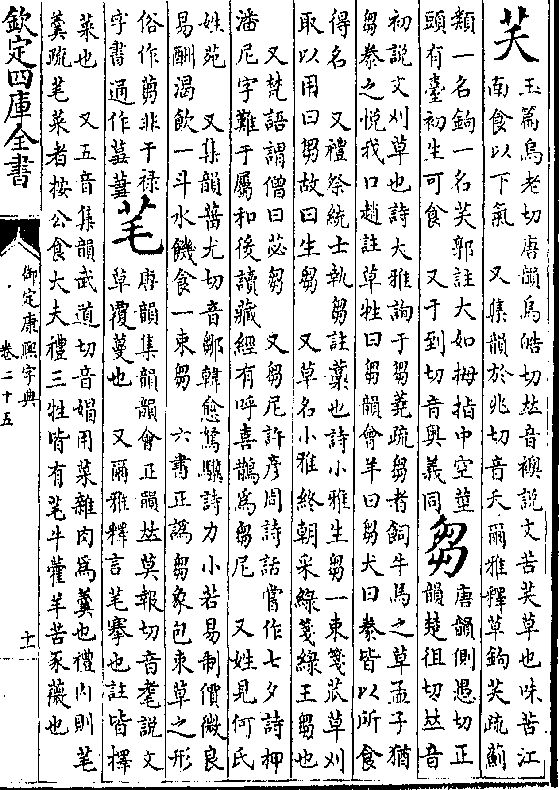 芺
玉篇烏老切唐韻烏皓切𠀤音襖說文苦芺草也味苦江
南食以下氣　又集韻於兆切音夭爾雅釋草鉤芺疏薊
類一名鉤一名芺郭註大如拇指中空莖
頭有臺初生可食　又于到切音奧義同
芻
唐韻側愚切正
韻楚徂切𠀤音
初說文刈草也詩大雅詢于芻蕘疏芻者飼牛馬之草孟子猶
芻豢之悅我口趙註草牲曰芻韻會羊曰芻犬曰豢皆以所食
得名　又禮祭統士執芻註藁也詩小雅生芻一束箋茁草刈
取以用曰芻故曰生芻　又草名小雅終朝采綠箋綠王芻也
又梵語謂僧曰苾芻　又芻尼許彥周詩話嘗作七夕詩押
潘尼字難于屬和後讀藏經有呼喜鵲為芻尼　又姓見何氏
姓苑　又集韻菑尤切音鄒韓愈駑驥詩力小若易制價微良
易酬渴飲一斗水饑食一束芻　六書正譌芻象包束草之形
俗作蒭非干祿
字書通作
芼
唐韻集韻韻會正韻𠀤莫報切音耄說文
草覆蔓也　又爾雅釋言芼搴也註皆擇
菜也　又五音集韻武道切音媢用菜雜肉為羹也禮內則芼
羹疏芼菜者按公食大夫禮三牲皆有芼牛藿羊苦豕薇也
欽定四庫全書
御定康熙字典
卷二十五
十一